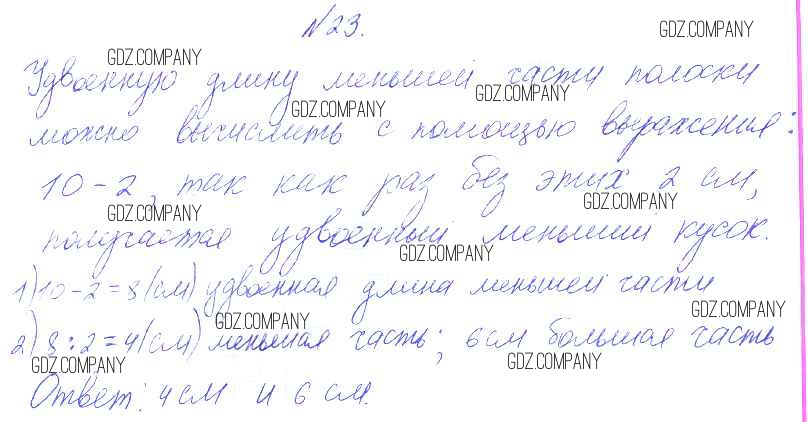 №23.
GDZ.COMPANY
GDZ.COMPANY
Удвоенную длину меньшей части полоски
GDZ.COMPANY
GDZ.COMPANY
можно вычислить с помощью выражения:
10-2, так как раз без этих 2 см,
GDZ.COMPANY
GDZ.COMPANY
получается удвоенный меньший кусок.
GDZ.COMPANY
1) 10-2=8(см) удвоенная длина меньшей части
GDZ.COMPANY
GDZ.COMPANY
2) 8:2=4(см) меньшая часть; 6см большая часть
GDZ.COMPANY
GDZ.COMPANY
Ответ: 4 см и 6 см.